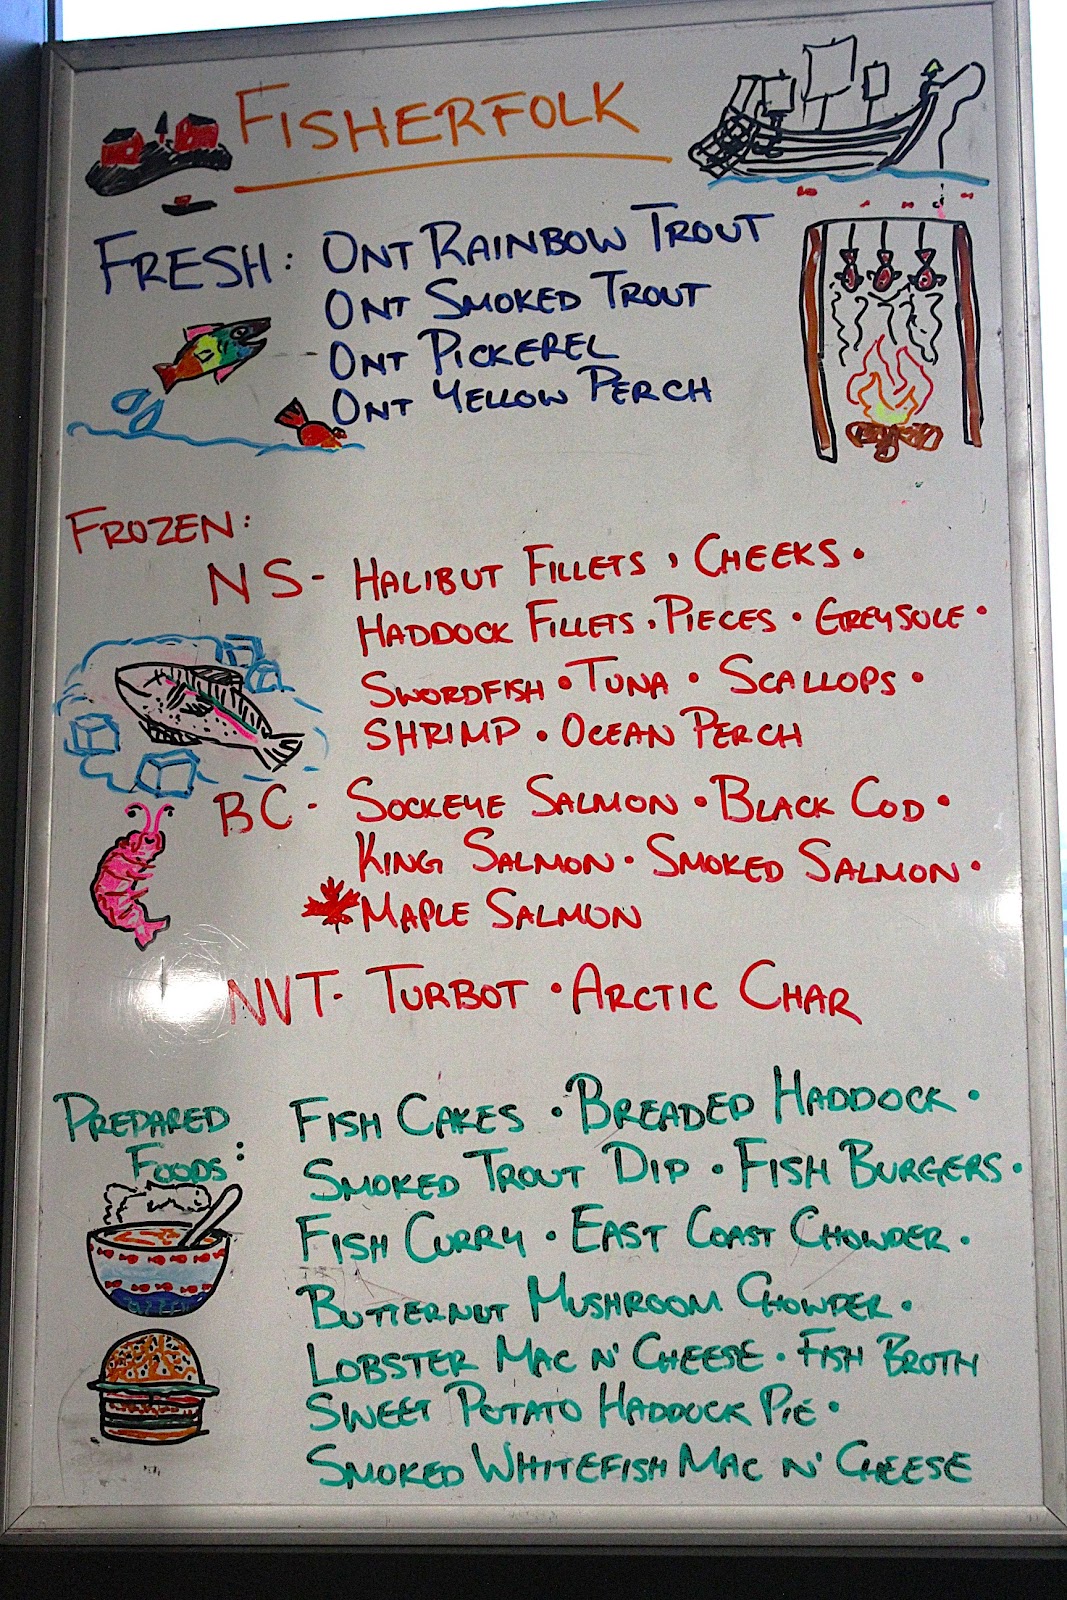 FISHERFOLK
FRESH: ONT RAINBOW TROUT
ONT SMOKED TROUT
ONT PICKEREL
ONT YELLOW PERCH
FROZEN:
NS- HALIBUT FILLETS, CHEEKS •
HADDOCK FILLETS, PIECES • GREYSOLE •
SWORDFISH • TUNA • SCALLOPS •
SHRIMP • OCEAN PERCH
BC - SOCKEYE SALMON • BLACK COD •
KING SALMON • SMOKED SALMON •
MAPLE SALMON
NVT- TURBOT • ARCTIC CHAR
PREPARED FOODS: FISH CAKES • BREADED HADDOCK •
SMOKED TROUT DIP • FISH BURGERS •
FISH CURRY • EAST COAST CHOWDER •
BUTTERNUT MUSHROOM CHOWDER •
LOBSTER MAC N' CHEESE • FISH BROTH
SWEET POTATO HADDOCK PIE •
SMOKED WHITEFISH MAC N' CHEESE